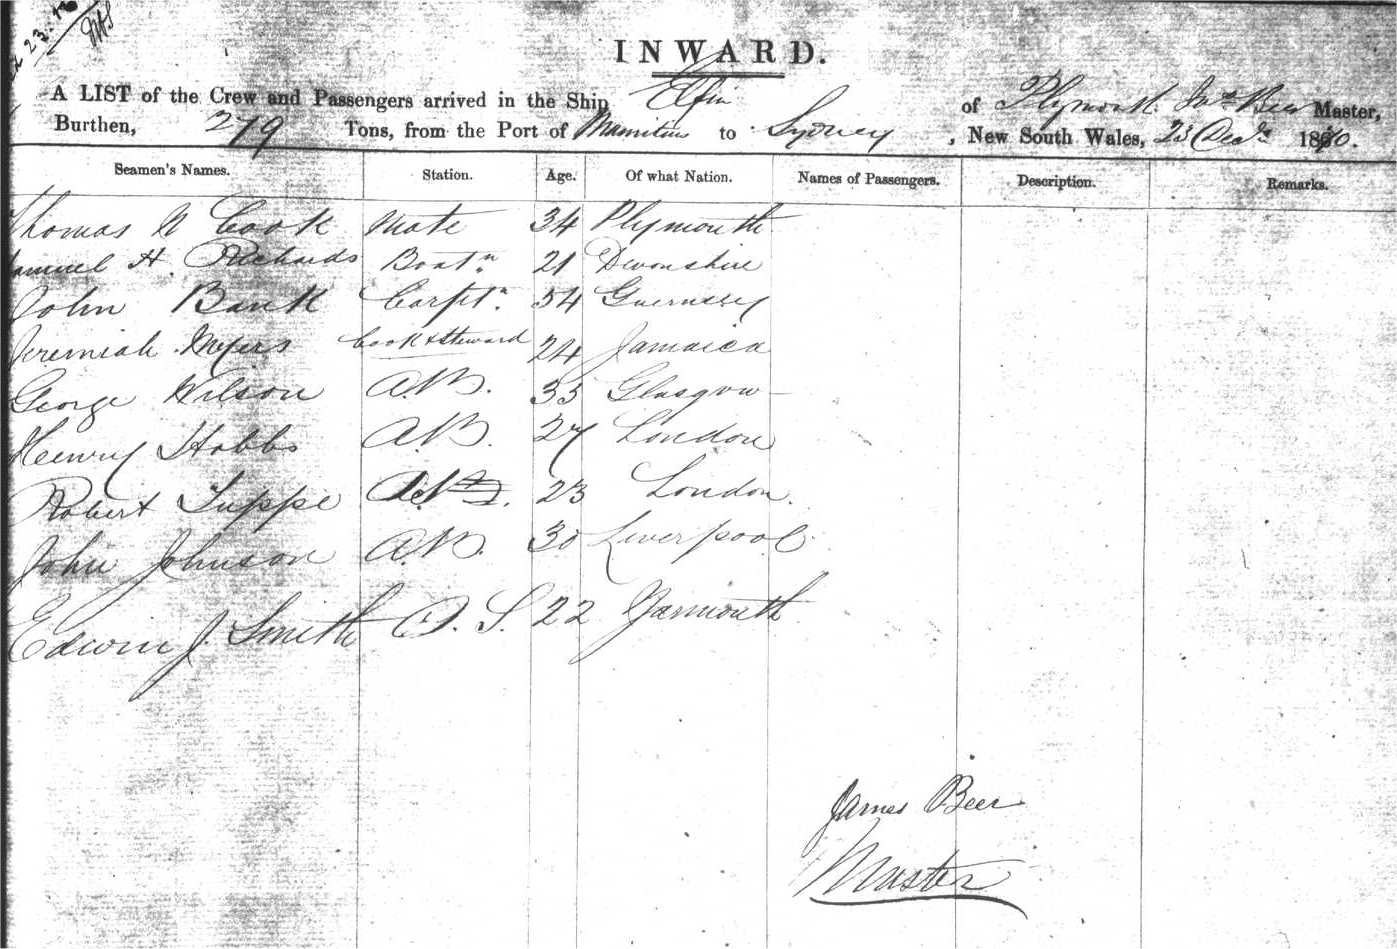 23.
INWARD.
A LIST of the Crew and Passengers arrived in the Ship Elfin of Plymouth Jas Beer Master,
Burthen, 279 Tons, from the Port of Mauritius to Sydney, New South Wales, 23 Decr 1870.
Seamen's Names. Station. Age. Of what Nation. Names of Passengers. Description. Remarks.
Thomas Cook Mate 34 Plymouth
Samuel H. Richards Boatn 21 Devonshire
John Bank Carptr 54 Guernsey
Jeremiah Myers Cook & Steward 24 Jamaica
George Wilson A.B. 35 Glasgow
Henry Hobbs A.B. 27 London
Robert Tuppe 23 London.
John Johnson A.B. 30 Liverpool
Edwin J. Smith O.S. 22 Yarmouth
James Beer
Master